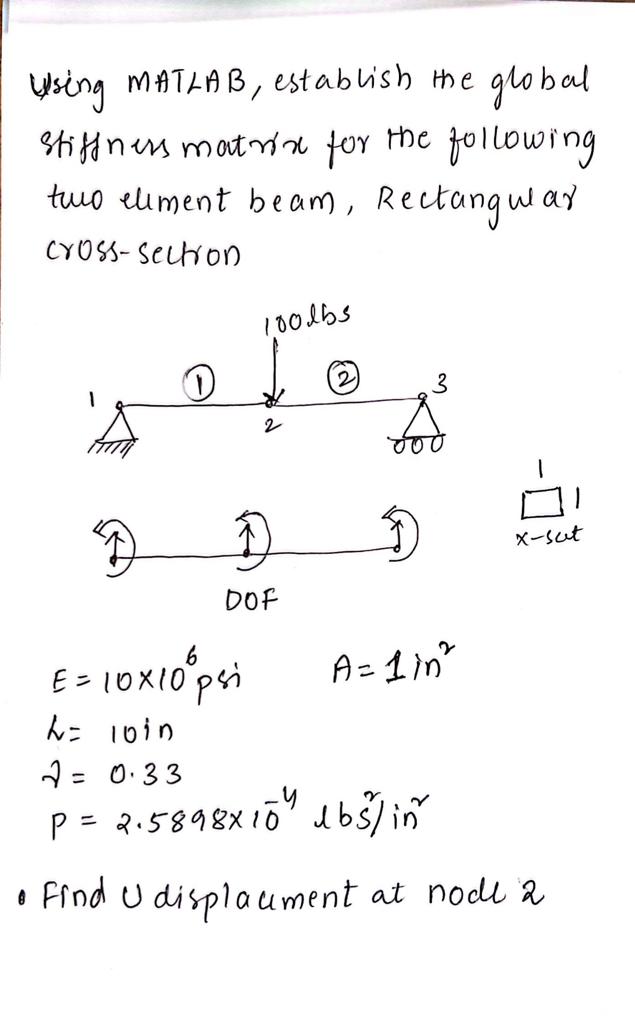 Using MATLAB, establish the global
stiffness matrix for the following
two element beam, Rectangular
cross-section
100lbs
1 ① ② 3
2
1
1
x-sect
DOF
E = 10x10⁶psi A = 1in²
L = 10in
ν = 0.33
ρ = 2.5898x10⁻⁴ lbs²/in²
• Find U displacement at node 2